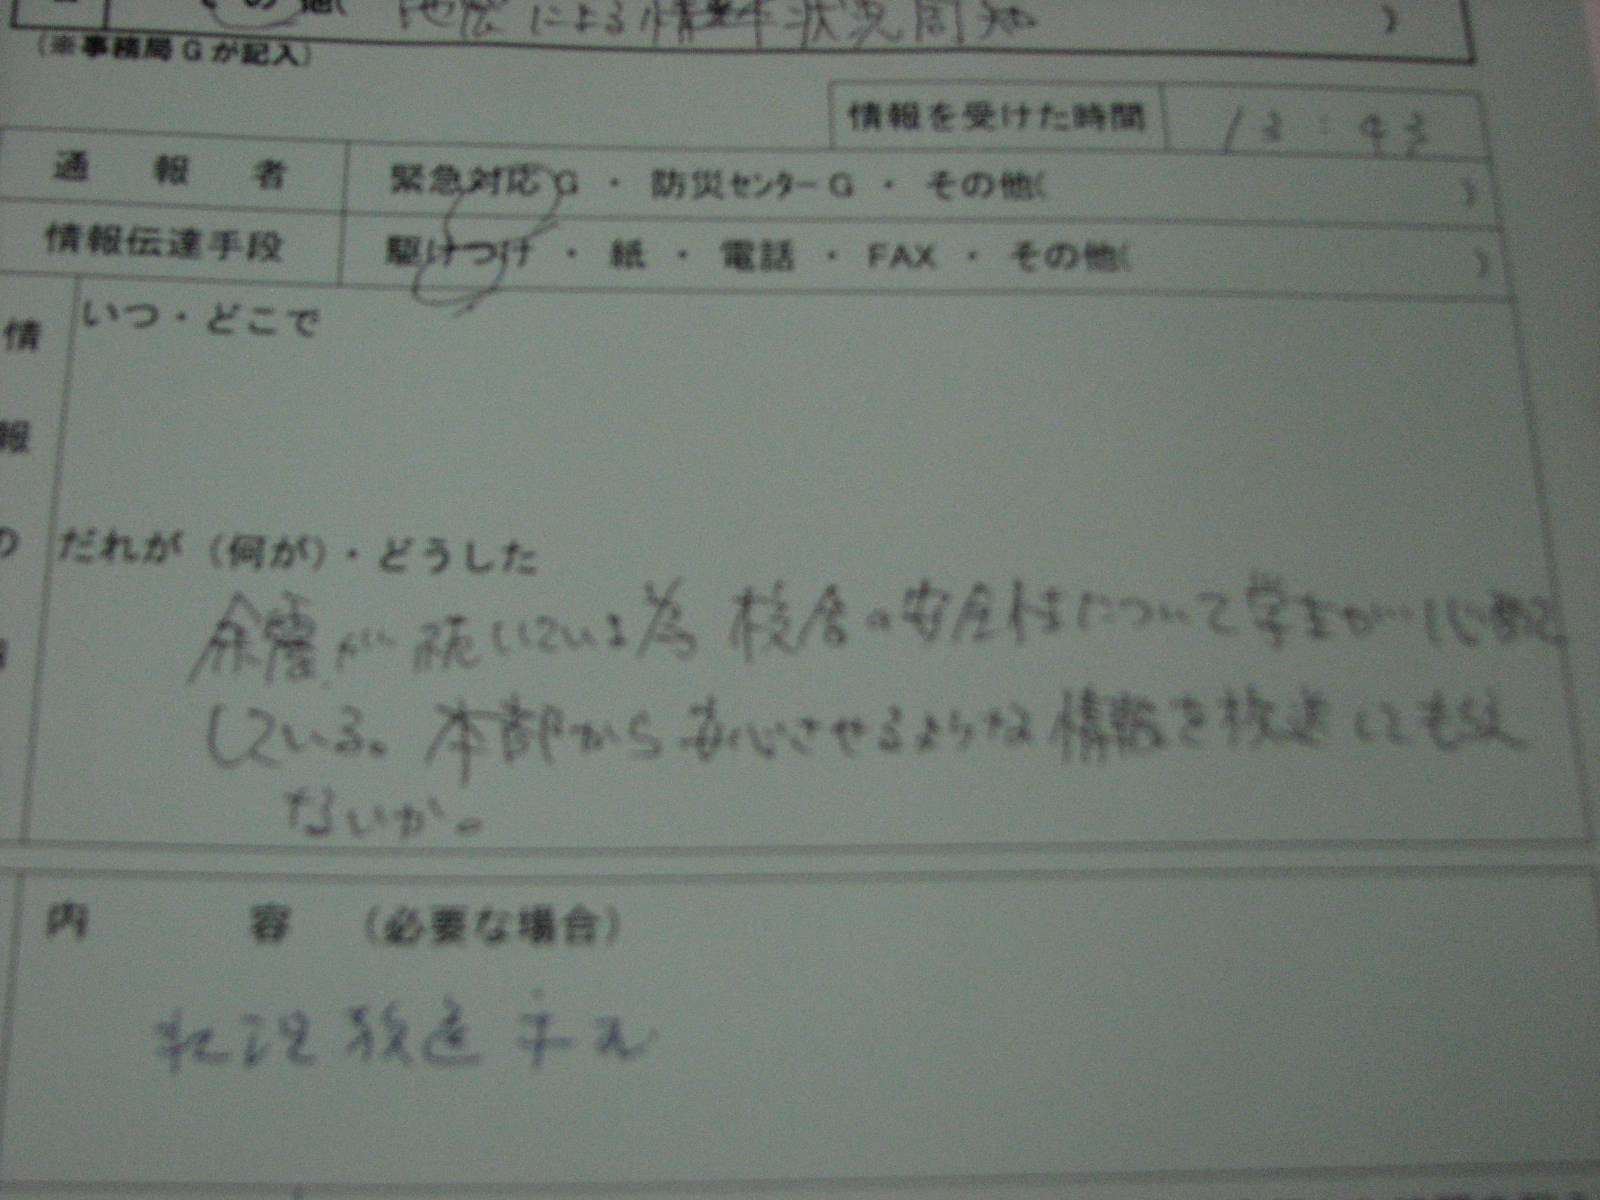 その他( 地震による 状況周知 )
(※事務局Gが記入)
情報を受けた時間 13:43
通報者 緊急対応G ・ 防災センターG ・ その他( )
情報伝達手段 駆けつけ ・ 紙 ・ 電話 ・ FAX ・ その他( )
情報の
いつ・どこで
だれが (何が)・どうした
余震が続いている為 校舎の安全性について学生が心配
している。本部から安心させるような情報を放送してもらえ
ないか。
内容 (必要な場合)
放送